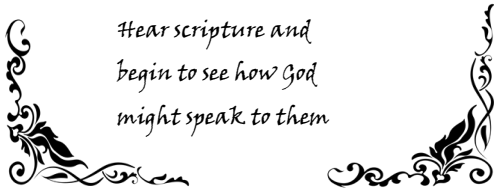 Hear scripture and
begin to see how God
might speak to them